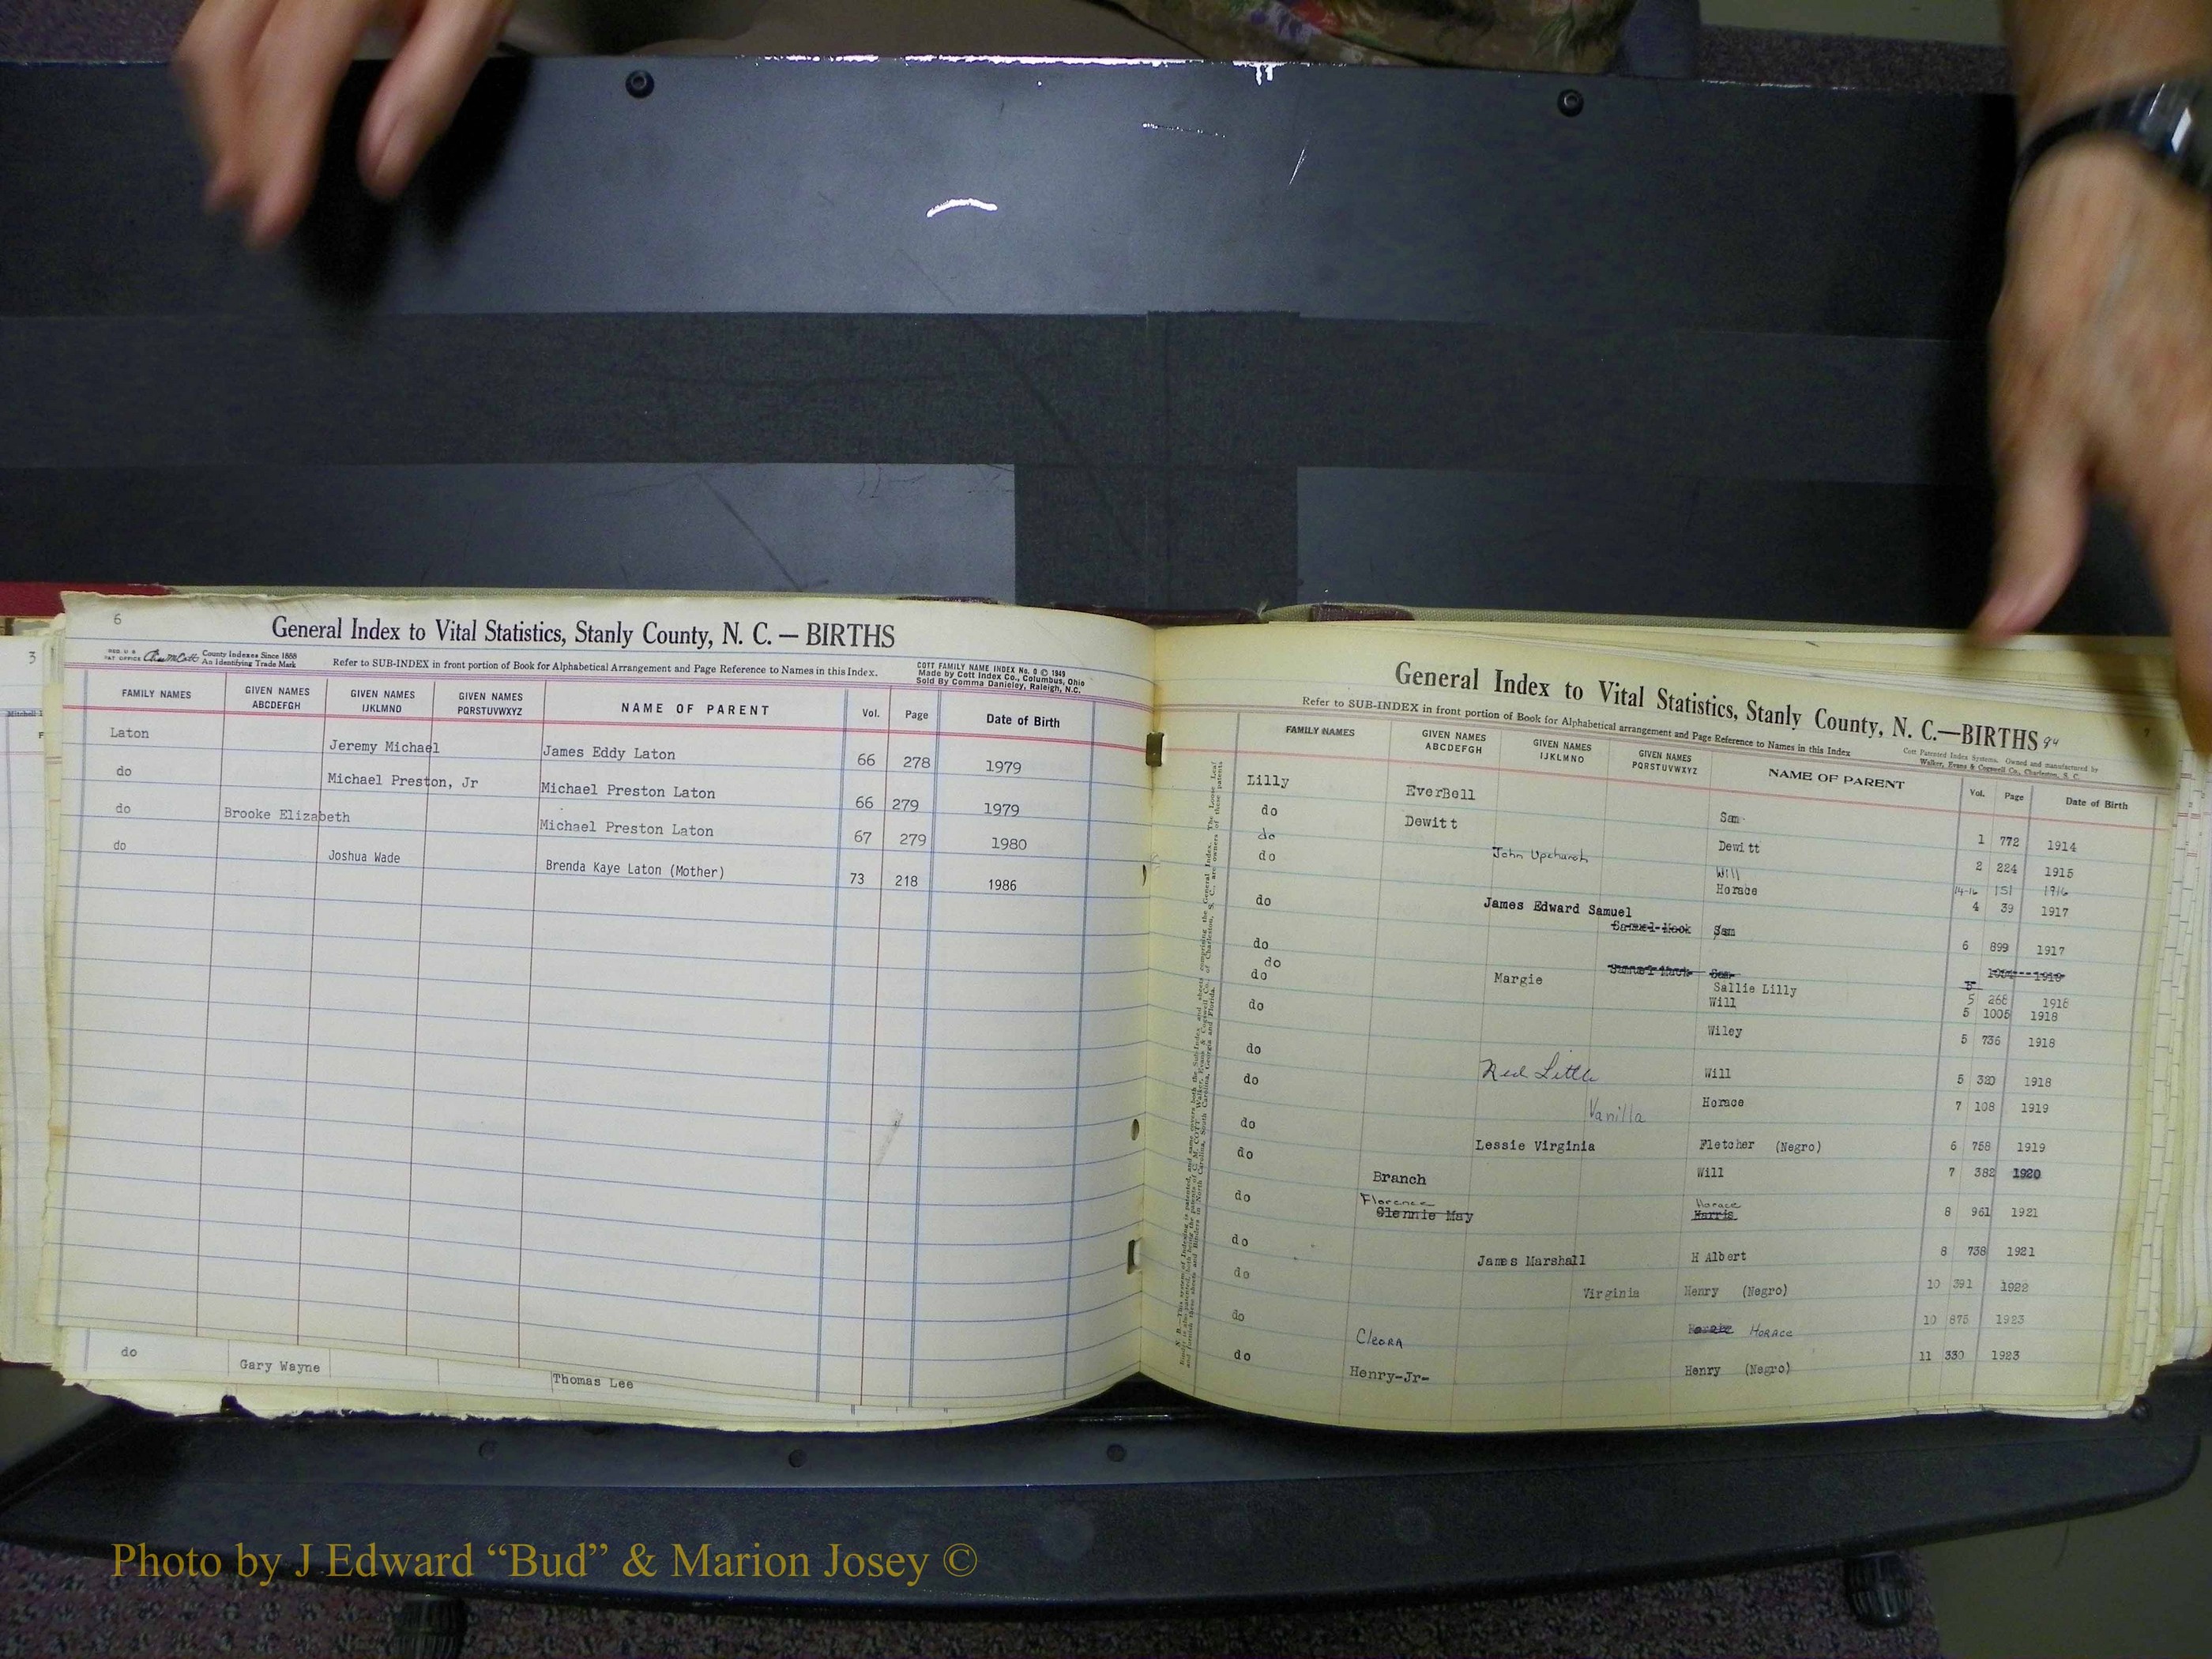 6
General Index to Vital Statistics, Stanly County, N. C. — BIRTHS
County Indexes Since 1888
An Identifying Trade Mark
Refer to SUB-INDEX in front portion of Book for Alphabetical Arrangement and Page Reference to Names in this Index.
COTT FAMILY NAME INDEX No. 0 © 1949
Made by Cott Index Co., Columbus, Ohio
Sold By Comma Danieley, Raleigh, N.C.
FAMILY NAMES GIVEN NAMES ABCDEFGH GIVEN NAMES IJKLMNO GIVEN NAMES PQRSTUVWXYZ NAME OF PARENT Vol. Page Date of Birth
Laton Jeremy Michael James Eddy Laton 66 278 1979
do Michael Preston, Jr Michael Preston Laton 66 279 1979
do Brooke Elizabeth Michael Preston Laton 67 279 1980
do Joshua Wade Brenda Kaye Laton (Mother) 73 218 1986
do Gary Wayne Thomas Lee
3
General Index to Vital Statistics, Stanly County, N. C.—BIRTHS 94
Refer to SUB-INDEX in front portion of Book for Alphabetical arrangement and Page Reference to Names in this Index
Cott Patented Index Systems. Owned and manufactured by
Walker, Evans & Cogswell Co., Charleston, S. C.
FAMILY NAMES GIVEN NAMES ABCDEFGH GIVEN NAMES IJKLMNO GIVEN NAMES PQRSTUVWXYZ NAME OF PARENT Vol. Page Date of Birth
Lilly EverBell Sam 1 772 1914
do Dewitt Dewitt 2 224 1915
do John Upchurch Will 14-16 151 1916
do Horace 4 39 1917
do James Edward Samuel Sam 6 899 1917
do
do Sallie Lilly 5 268 1918
do Margie Will 5 1005 1918
do Wiley 5 736 1918
do Ned Little Will 5 320 1918
do Vanilla Horace 7 108 1919
do Lessie Virginia Fletcher (Negro) 6 758 1919
do Branch Will 7 382 1920
do Florence Glennie May Horace Harris 8 961 1921
do James Marshall H Albert 8 738 1921
do Virginia Henry (Negro) 10 391 1922
do Cleora Horace 10 875 1923
do Henry-Jr- Henry (Negro) 11 330 1923
Photo by J Edward “Bud” & Marion Josey ©